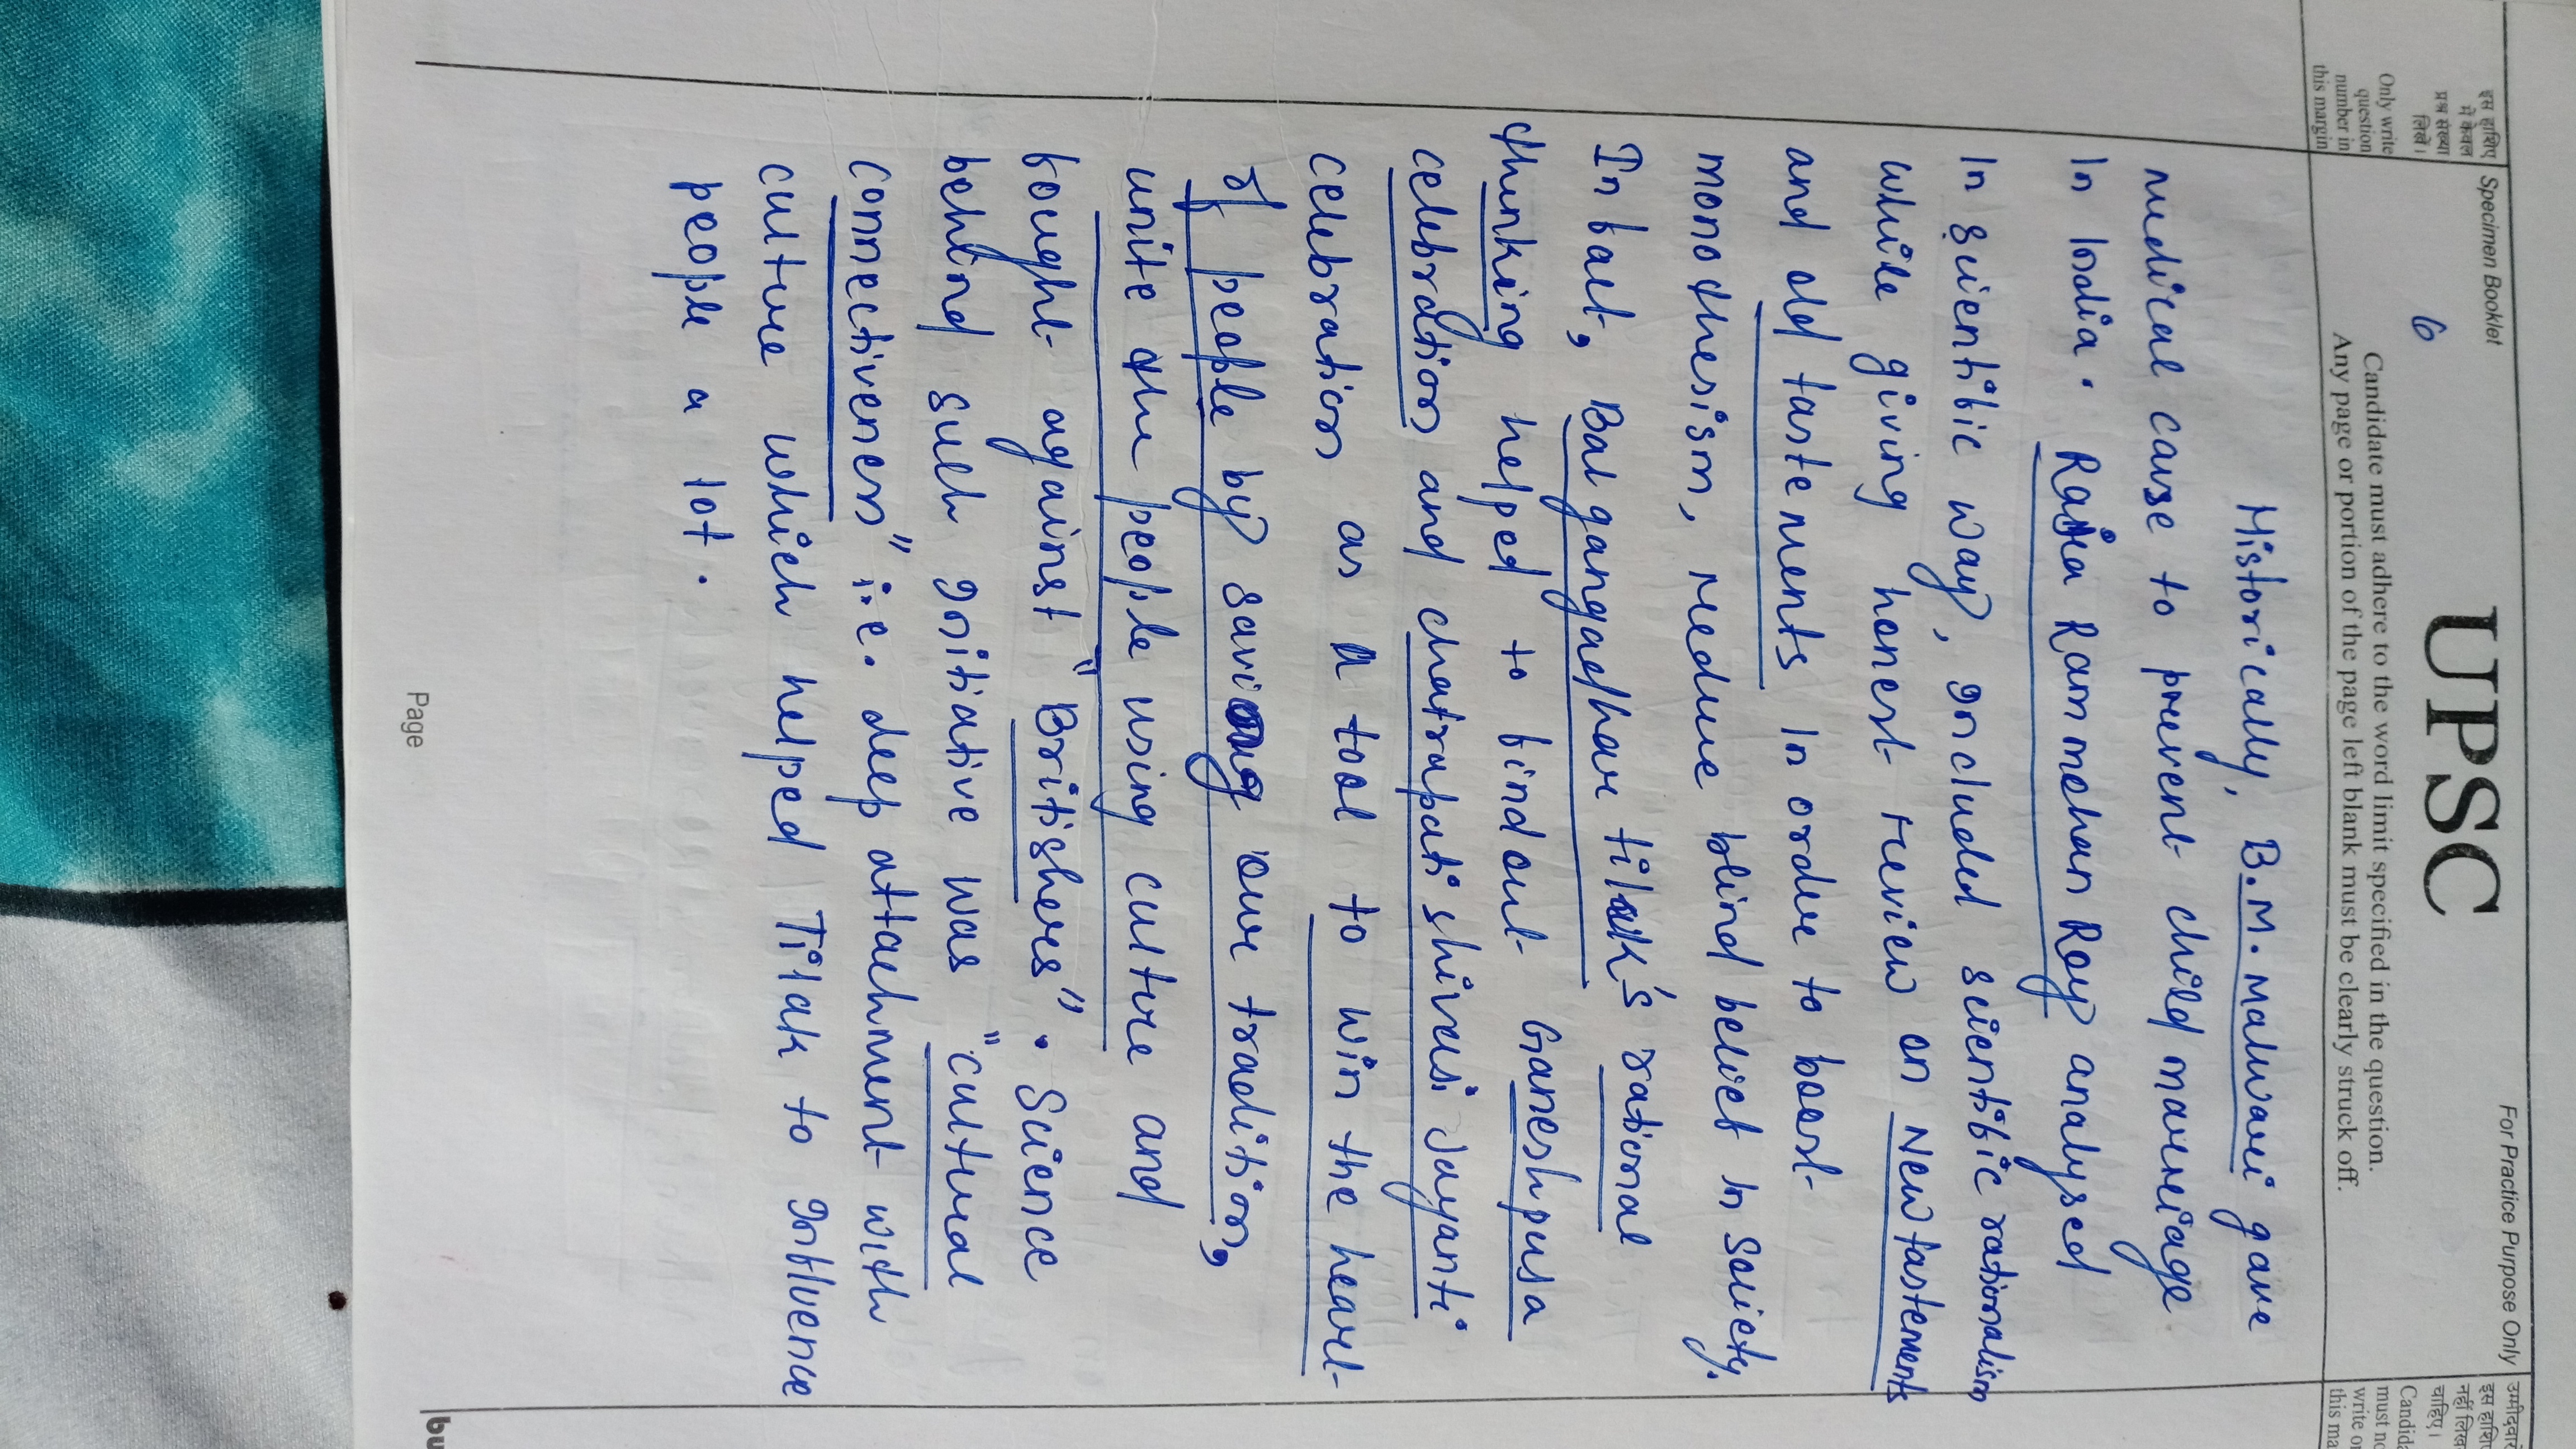 इस हाशिए
में केवल
प्रश्न संख्या
लिखें।
Only write
question
number in
this margin
Specimen Booklet
6
UPSC
For Practice Purpose Only
Candidate must adhere to the word limit specified in the question.
Any page or portion of the page left blank must be clearly struck off.
उम्मीदवार
इस हाशिए
नहीं लिख
चाहिए।
Candida
must no
write o
this ma
Historically, B.M. Malwari gave
medical cause to prevent child marriage
in India. Raja Rammohan Roy analysed
in scientific way, included scientific rationalism
while giving honest review on New tastements
and old tastements in order to boost
monothesism, reduce blind belief in society.
In fact, Bal gangadhar tilak's rational
thinking helped to bind out Ganesh pusa
celebration and chatrapati shivasi Jayanti
celebration as a tool to win the heart
of people by saving our tradition,
unite the people using culture and
fought against "Britishers". Science
behind such initiative was "cultural
connectiveness" i.e. deep attachment with
culture which helped Tilak to influence
people a lot.
Page